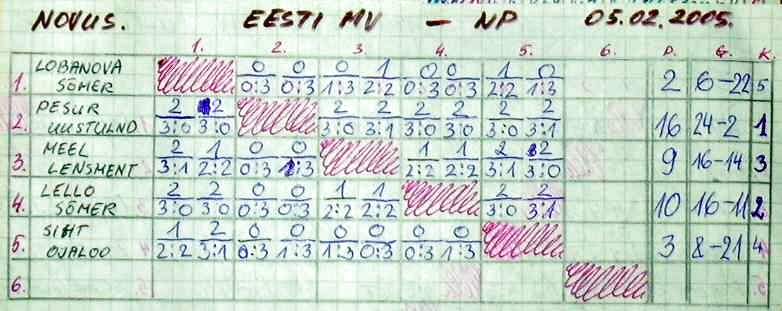 NOVUS. EESTI MV - NP 05.02.2005.
1. 2. 3. 4. 5. 6. P. G. K.
LOBANOVA 0 0 0 1 0 0 1 0
1. SÕMER 0:3 0:3 1:3 2:2 0:3 0:3 2:2 1:3 2 6-22 5
PESUR 2 2 2 2 2 2 2 2
2. UUSTULND 3:0 3:0 3:0 3:1 3:0 3:0 3:0 3:1 16 24-2 1
MEEL 2 1 0 0 1 1 2 2
3. LENSMENT 3:1 2:2 0:3 1:3 2:2 2:2 3:1 3:0 9 16-14 3
LELLO 2 2 0 0 1 1 2 2
4. SÕMER 3:0 3:0 0:3 0:3 2:2 2:2 3:0 3:1 10 16-11 2
SIHT 1 2 0 0 0 0 0 0
5. OJALOO 2:2 3:1 0:3 1:3 1:3 0:3 0:3 1:3 3 8-21 4
6.